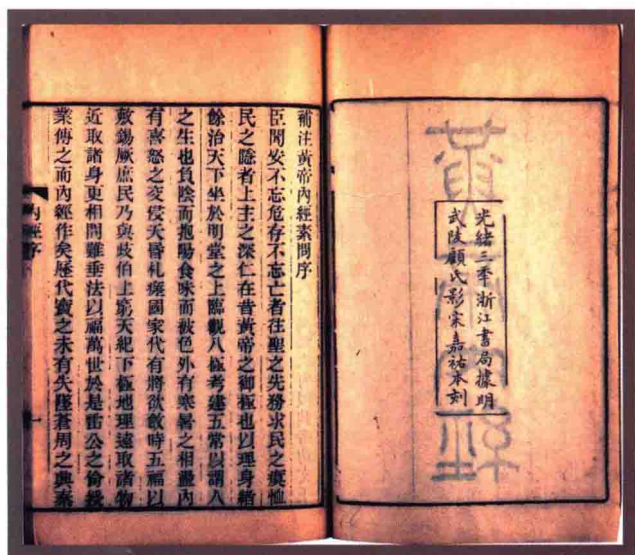 光緒三秊浙江書局據明
武陵顧氏影宋嘉祐本刻
補注黃帝內經素問序
臣聞安不忘危存不忘亡者往聖之先務求民之瘼恤
民之隱者上主之深仁在昔黃帝之御極也以理身緒
餘治天下坐於明堂之上臨觀八極考建五常以謂人
之生也負陰而抱陽食味而被色外有寒暑之相盪內
有喜怒之交侵夭昏札瘥國家代有將欲斂時五福以
敷錫厥庶民乃與歧伯上窮天紀下極地理遠取諸物
近取諸身更相問難垂法以福萬世於是雷公之倫授
業傳之而內經作矣歷代寶之未有失墜蒼周之興秦
內經序